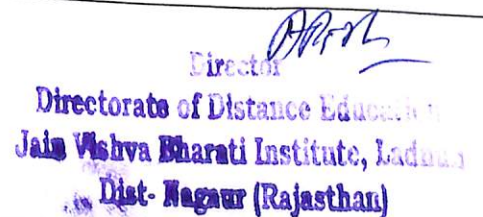 Director
Directorate of Distance Education
Jain Vishva Bharati Institute, Ladnun
Dist- Nagaur (Rajasthan)